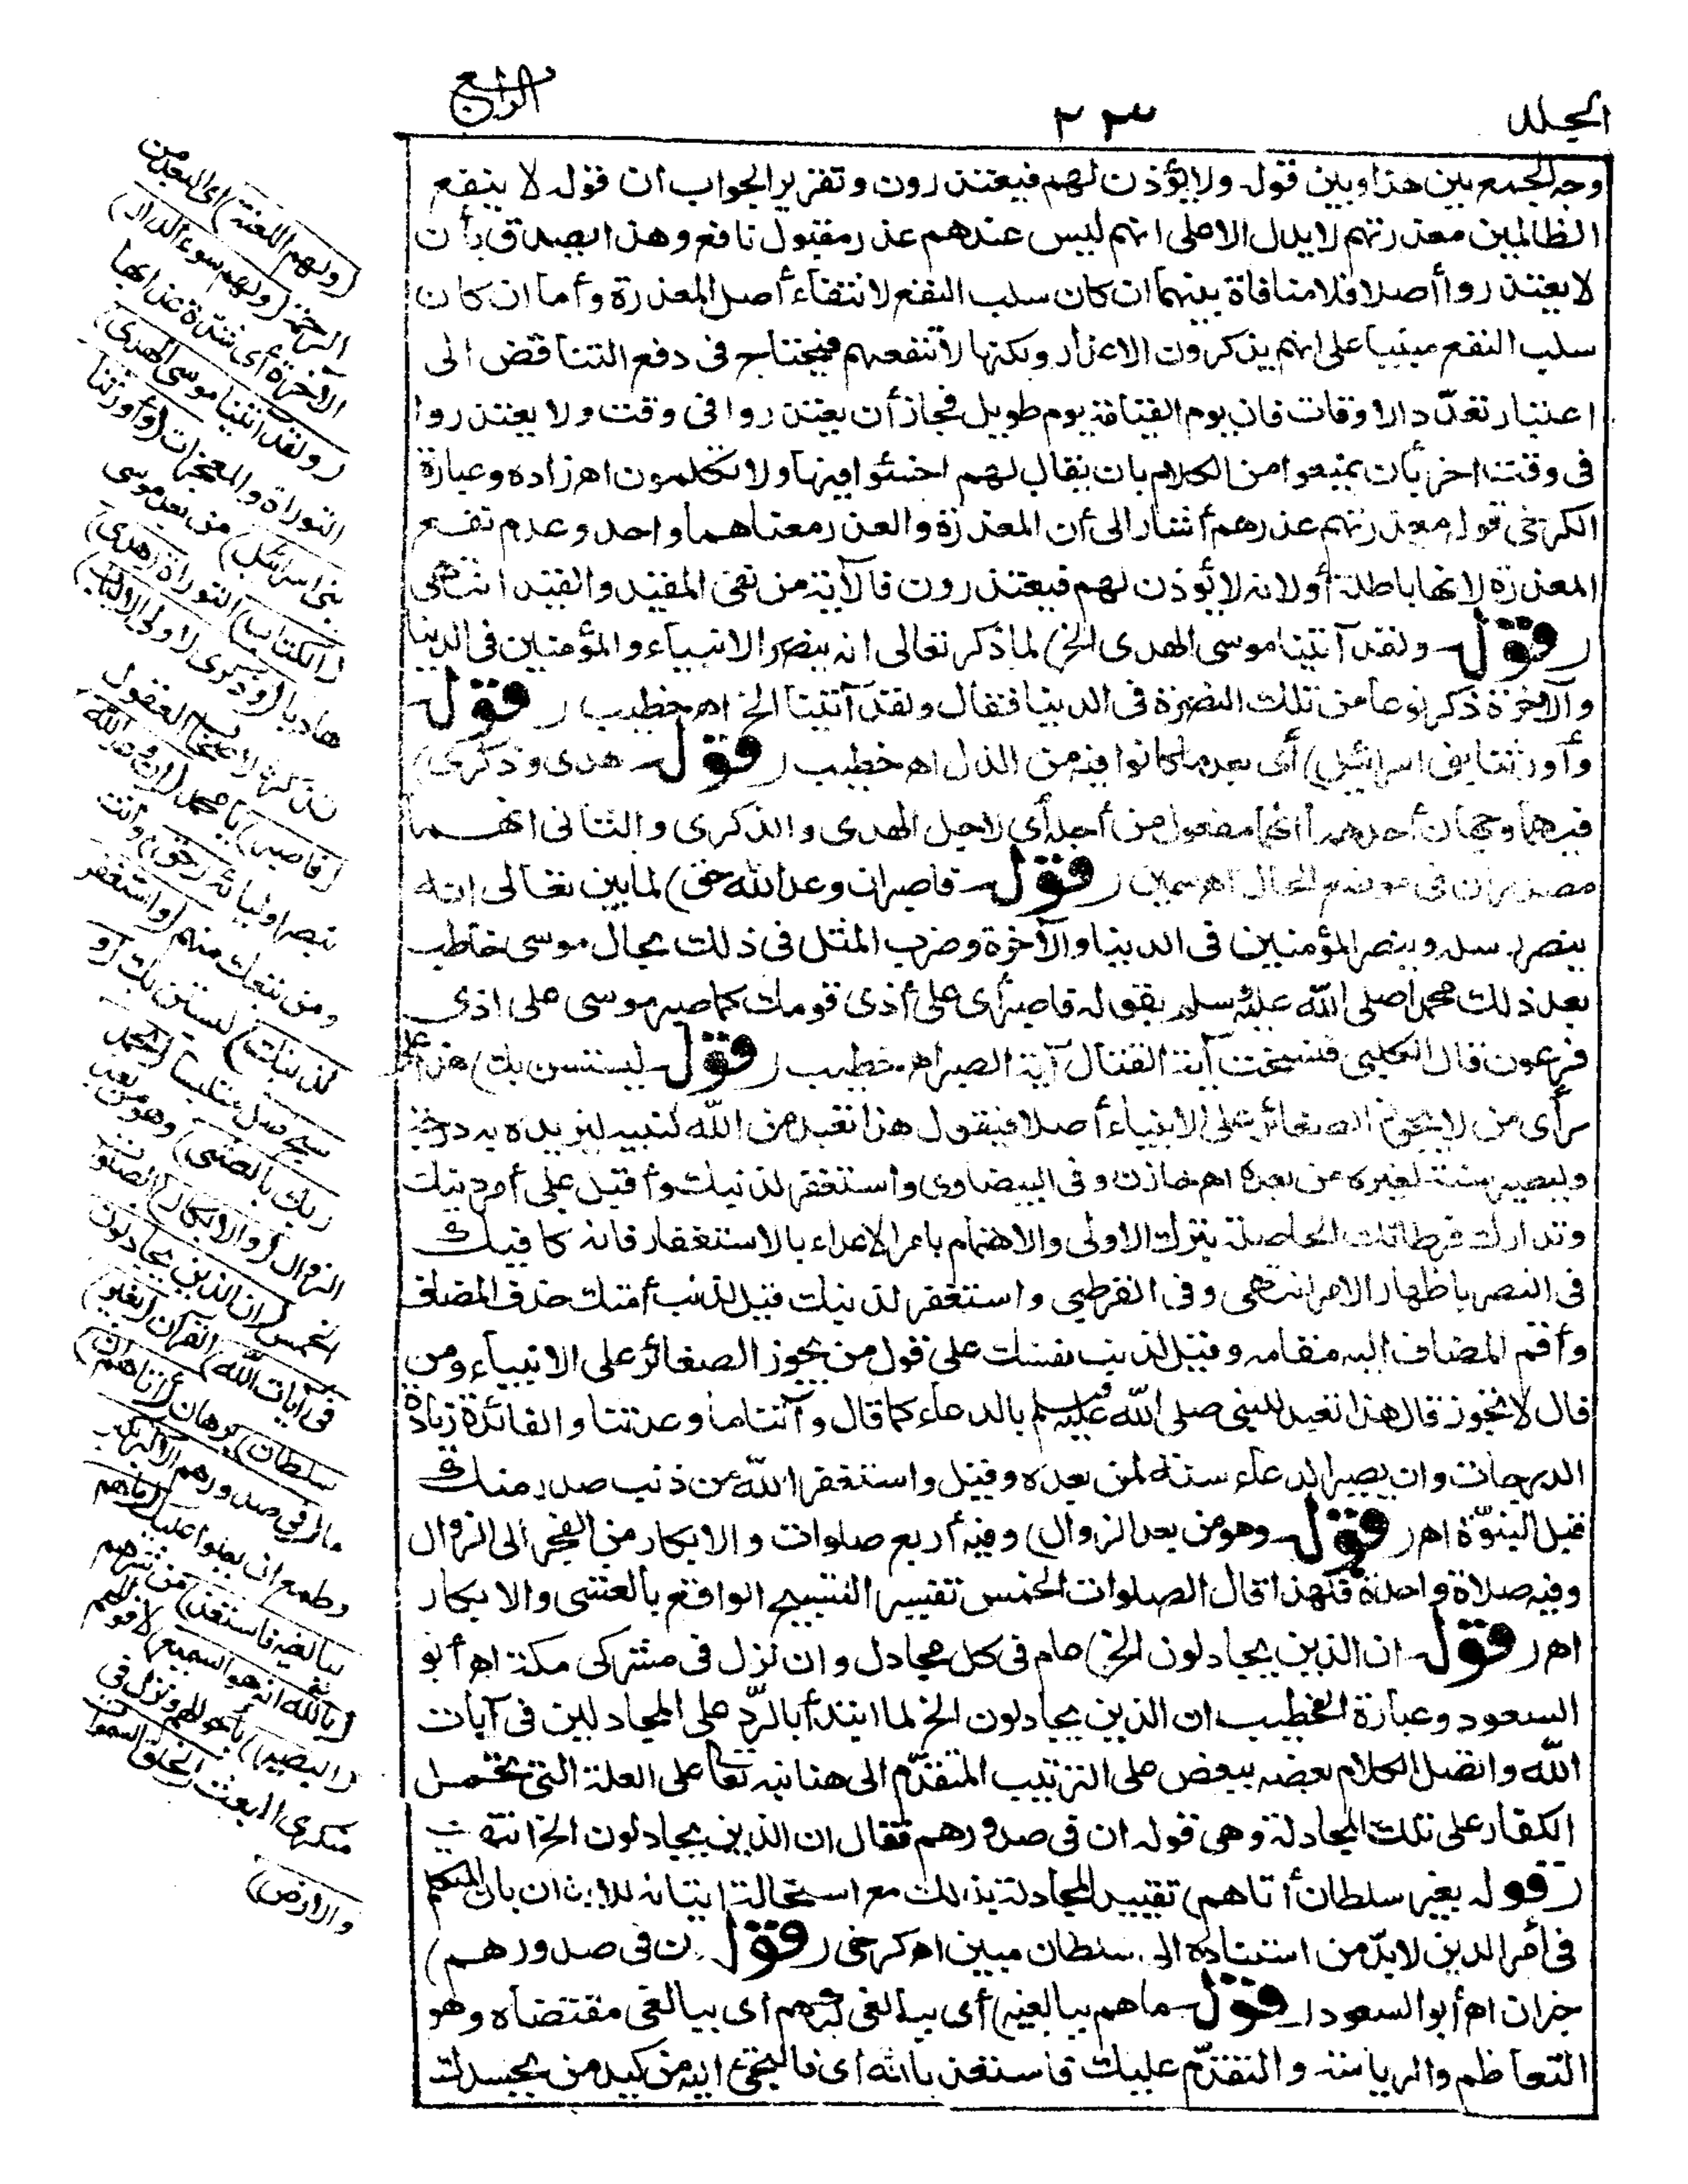 المجلد
٢٣
الرابع
وجه الجمع بين هذا وبين قوله ولا يؤذن لهم فيعتذرون وتقرير الجواب ان قوله لا ينفع
الظالمين معذرتهم لا يدل الا على انهم ليس عندهم عذر مقبول نافع وهذا يصدق بأن
لا يعتذروا أصلا فلا منافاة بينهما ان كان سلب النفع لانتفاء أصل المعذرة وأما ان كان
سلب النفع مبنيا على انهم يذكرون الاعذار ولكنها لا تنفعهم فيحتاج في دفع التناقض الى
اعتبار تعدّد الاوقات فان يوم القيامة يوم طويل فجاز أن يعتذروا في وقت ولا يعتذروا
في وقت اخر بأن يمنعوا من الكلام بان يقال لهم اخسئوا فيها ولا تكلمون اهـ زاده وعبارة
الكرخي قوله معذرتهم عذرهم أشار الى أن المعذرة والعذر معناهما واحد وعدم نفع
المعذرة لانها باطلة أو لانه لا يؤذن لهم فيعتذرون فالآية من نفي المقيد والقيد انتهى
(قوله ولقد آتينا موسى الهدى الخ) لما ذكر تعالى انه ينصر الانبياء والمؤمنين في الدنيا
والآخرة ذكر نوعا من تلك النصرة في الدنيا فقال ولقد آتينا الخ اهـ خطيب (قوله
وأورثنا بني اسرائيل) أى بعد ما كانوا فيه من الذل اهـ خطيب (قوله هدى وذكرى)
فيهما وجهان أحدهما انهما مفعول من أجله أى لاجل الهدى والذكرى والثاني انهما
مصدران في موضع الحال اهـ سمين (قوله فاصبر ان وعد الله حق) لما بين تعالى انه
ينصر رسله وينصر المؤمنين في الدنيا والآخرة وضرب المثل في ذلك بحال موسى خاطب
بعد ذلك محمدا صلى الله عليه وسلم بقوله فاصبر أى على أذى قومك كما صبر موسى على اذى
فرعون قال الكلبي فنسخت آية القتال آية الصبر اهـ خطيب (قوله ليستن بك) هذا على
رأى من لا يجوز الصغائر على الانبياء أصلا فيقول هذا تعبد من الله لنبيه ليزيده به درجة
وليصير سنة لغيره من بعده اهـ خازن وفي البيضاوى واستغفر لذنبك وأقبل على أمر دينك
وتدارك فرطاتك الحاصلة بترك الاولى والاهتمام بامر الاعداء بالاستغفار فانه كافيك
في النصر باظهار الامر انتهى وفي القرطبي واستغفر لذنبك قيل لذنب أمتك حذف المضاف
وأقيم المضاف اليه مقامه وقيل لذنب نفسك على قول من يجوز الصغائر على الانبياء ومن
قال لا تجوز قال هذا تعبد للنبي صلى الله عليه وسلم بالدعاء كما قال وآتنا ما وعدتنا والفائدة زيادة
الدرجات وان يصير الدعاء سنة لمن بعده وقيل واستغفر الله من ذنب صدر منك
قبل النبوّة اهـ (قوله وهو من بعد الزوال) وفيه أربع صلوات والابكار من الفجر الى الزوال
وفيه صلاة واحدة فلهذا قال الصلوات الخمس تفسير التسبيح الواقع بالعشى والابكار
اهـ (قوله ان الذين يجادلون الخ) عام في كل مجادل وان نزل في مشركى مكة اهـ أبو
السعود وعبارة الخطيب ان الذين يجادلون الخ لما ابتدأ بالردّ على المجادلين في آيات
الله واتصل الكلام بعضه ببعض على الترتيب المتقدّم الى هنا نبه تعالى على العلة التي تحمل
الكفار على تلك المجادلة وهى قوله ان في صدورهم فقال ان الذين يجادلون الخ انتهت
(قوله بغير سلطان أتاهم) تقييد المجادلة بذلك مع استحالة اتيانه للايذان بان المتكلم
في أمر الدين لا بدّ من استناده الى سلطان مبين اهـ كرخى (قوله ان في صدورهم)
خبر ان اهـ أبو السعود (قوله ما هم ببالغيه) أى ببالغي كبرهم أى ببالغي مقتضاه وهو
التعاظم والرياسة والتقدّم عليك فاستعذ بالله أى فالتجئ اليه من كيد من يحسدك
(ولهم اللعنة) أى البعد من
الرحمة (ولهم سوء الدار)
الآخرة أى شدّة عذابها
(ولقد اتينا موسى الهدى)
التوراة والمعجزات (وأورثنا
بني اسرائيل) من بعد موسى
(الكتاب) التوراة (هدى)
هاديا (وذكرى لاولى الالباب)
تذكرة لاصحاب العقول
(فاصبر) يا محمد (ان وعد الله)
بنصر اوليائه (حق) وأنت
ومن تبعك منهم (واستغفر
لذنبك) ليستن بك (و
سبح) صل متلبسا (بحمد
ربك بالعشى) وهو من بعد
الزوال (والابكار) الصلوات
الخمس (ان الذين يجادلون
في آيات الله) القرآن (بغير
سلطان) برهان (أتاهم ان)
ما (في صدورهم الا كبر) تكبر
وطمع ان يعلوا عليك (ما هم
ببالغيه فاستعذ) من شرهم
(بالله انه هو السميع) لاقوالهم
(البصير) بأحوالهم ونزل في
منكرى البعث (لخلق السموات
والارض)